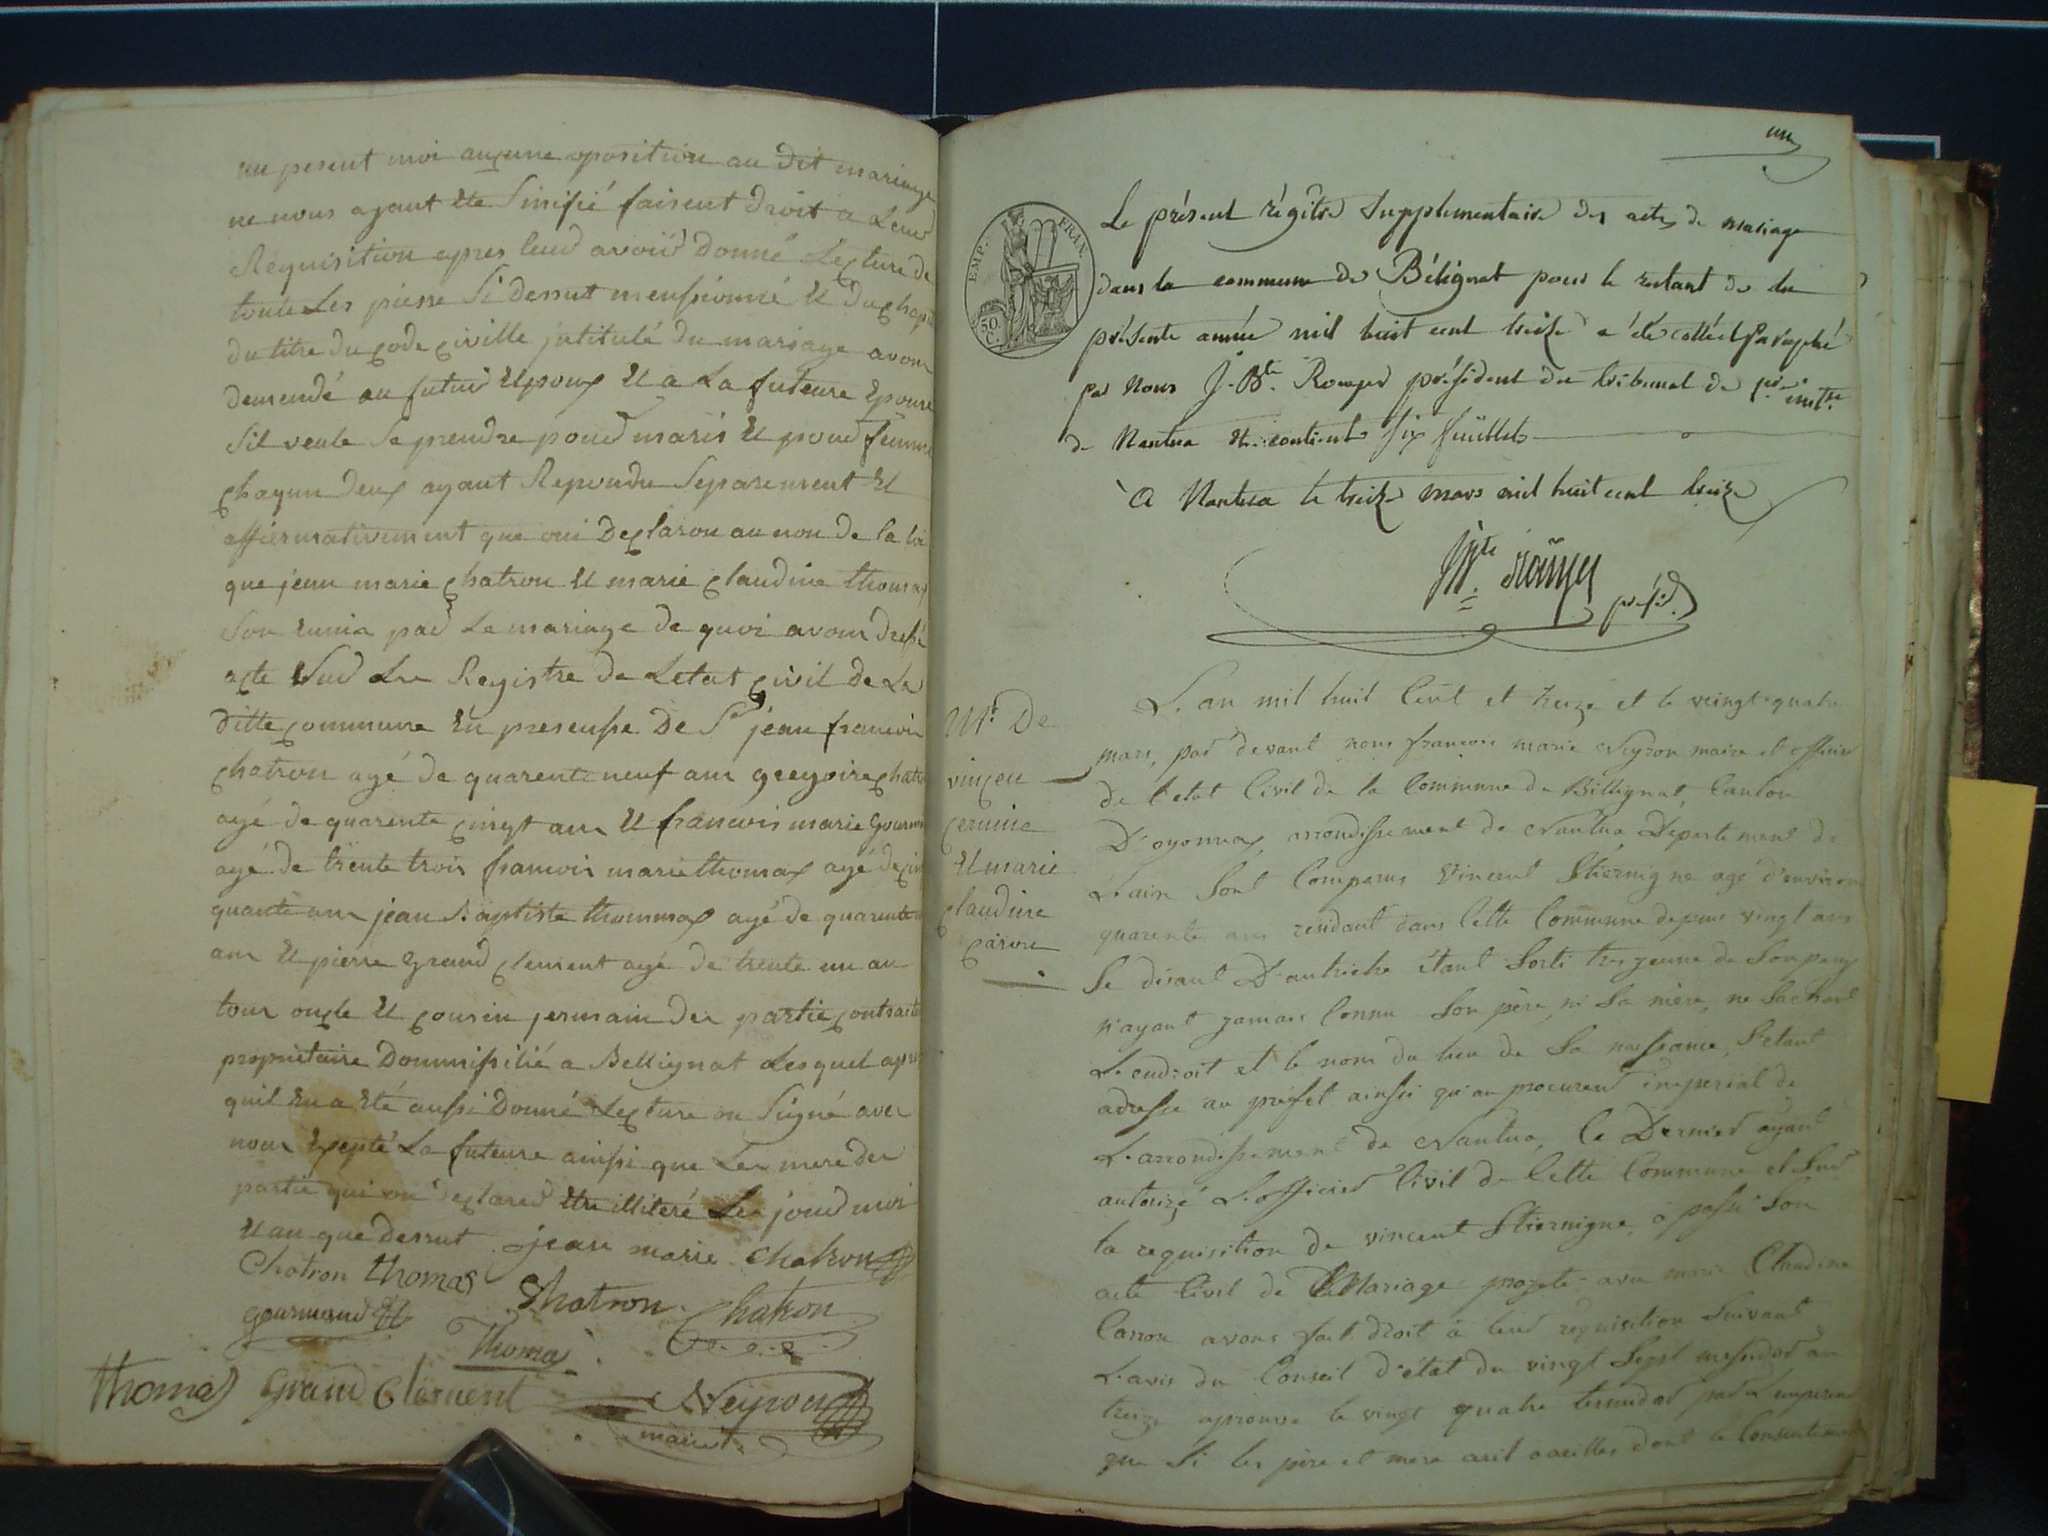 nu pesent moi auqune oposition au dit mariage
ne nous ayant ete Sinifié faisent droit a Leur
Requisition apres leur avoir donné Lecture de
toute Les piesse Si dessut mensionné et du chap
du titre du code civille intitulé du mariage avons
demendé au futur Epoux et a La future Epouse
Sil veule Se prendre pour maris et pour femme
chaqun deux ayant Repondu Separement et
affirmativement que oui declaron au non de la loi
que jean marie chatron et marie claudine thomas
Son eunin par Le mariage de quoi avons dressé
acte Sur Les Registre de Letat civil de La
ditte commune en presensse de Sr jean francois
chatron agé de quarente neuf ans gregoire chatron
agé de quarente cinqt ans et francois marie Gourmand
agé de trente trois francois marie thomas agé de cin
quante ans jean Baptiste thommas agé de quarente
ans et pierre grand clement agé de trente un an
tous oncle et cousin jermain des partie contractante
proprietaire dommissilié a Bellignat Lesquel apres
quil en a eté aussi donné Lecture on Signé avec
nous Exepté La future ainssi que Les mere des
partie qui on declarer etre illiteré Les jour moi
et an que dessut jean marie chatron
Chatron thomas
gourmand Chatron Chatron
Thomas
thomas Grand Clement Neyrou
maire
un
EMP. FRAN.
50. C.
Le présent régitre Supplementaire des actes de mariage
dans la commune de Bélignat pour le restant de la
présente année mil huit cent treize a été cotté et Paraphé
par Nous J. Bte. Rouyer président du tribunal de pre. instce.
de Nantua et contient six feuillets
A Nantua le treize mars mil huit cent treize
présid.
Mr. De
vincen
Et marie
claudine
carone
L'an mil huit Cent et treize et le veingt-quatre
mars, par devant nous francois marie Neyron maire et officier
de l'etat Civil de la Commune de Billignat, Canton
D'oyonnax, arrondissement de Nantua Departement de
L'ain Sont Comparus Vincent Stiernigne agé d'environ
quarente ans residant dans Cette Commune depuis vingt ans
Se disant D'autriche étant Sorti tres jeune de Son pays
n'ayant jamais Connu Son père, ni Sa mère, ne Sachant
L'endroit et le nom du lieu de Sa naissance, S'etant
adressé au préfet ainssi qu'au procureur imperial de
L'arrondissement de Nantua, le Dernier ayant
autorizé L'officier Civil de Cette Commune et Sur
la requisition de vincent Stiernigne, a passé Son
acte Civil de Mariage projeté avec marie Claudine
Caron avons fait droit à leur requisition Suivant
L'avis du Conseil d'état du vingt Sept messidor an
treize aprouvé le vingt quatre termidor par L'empereur
que Si les père et mere ou dont le Consentement